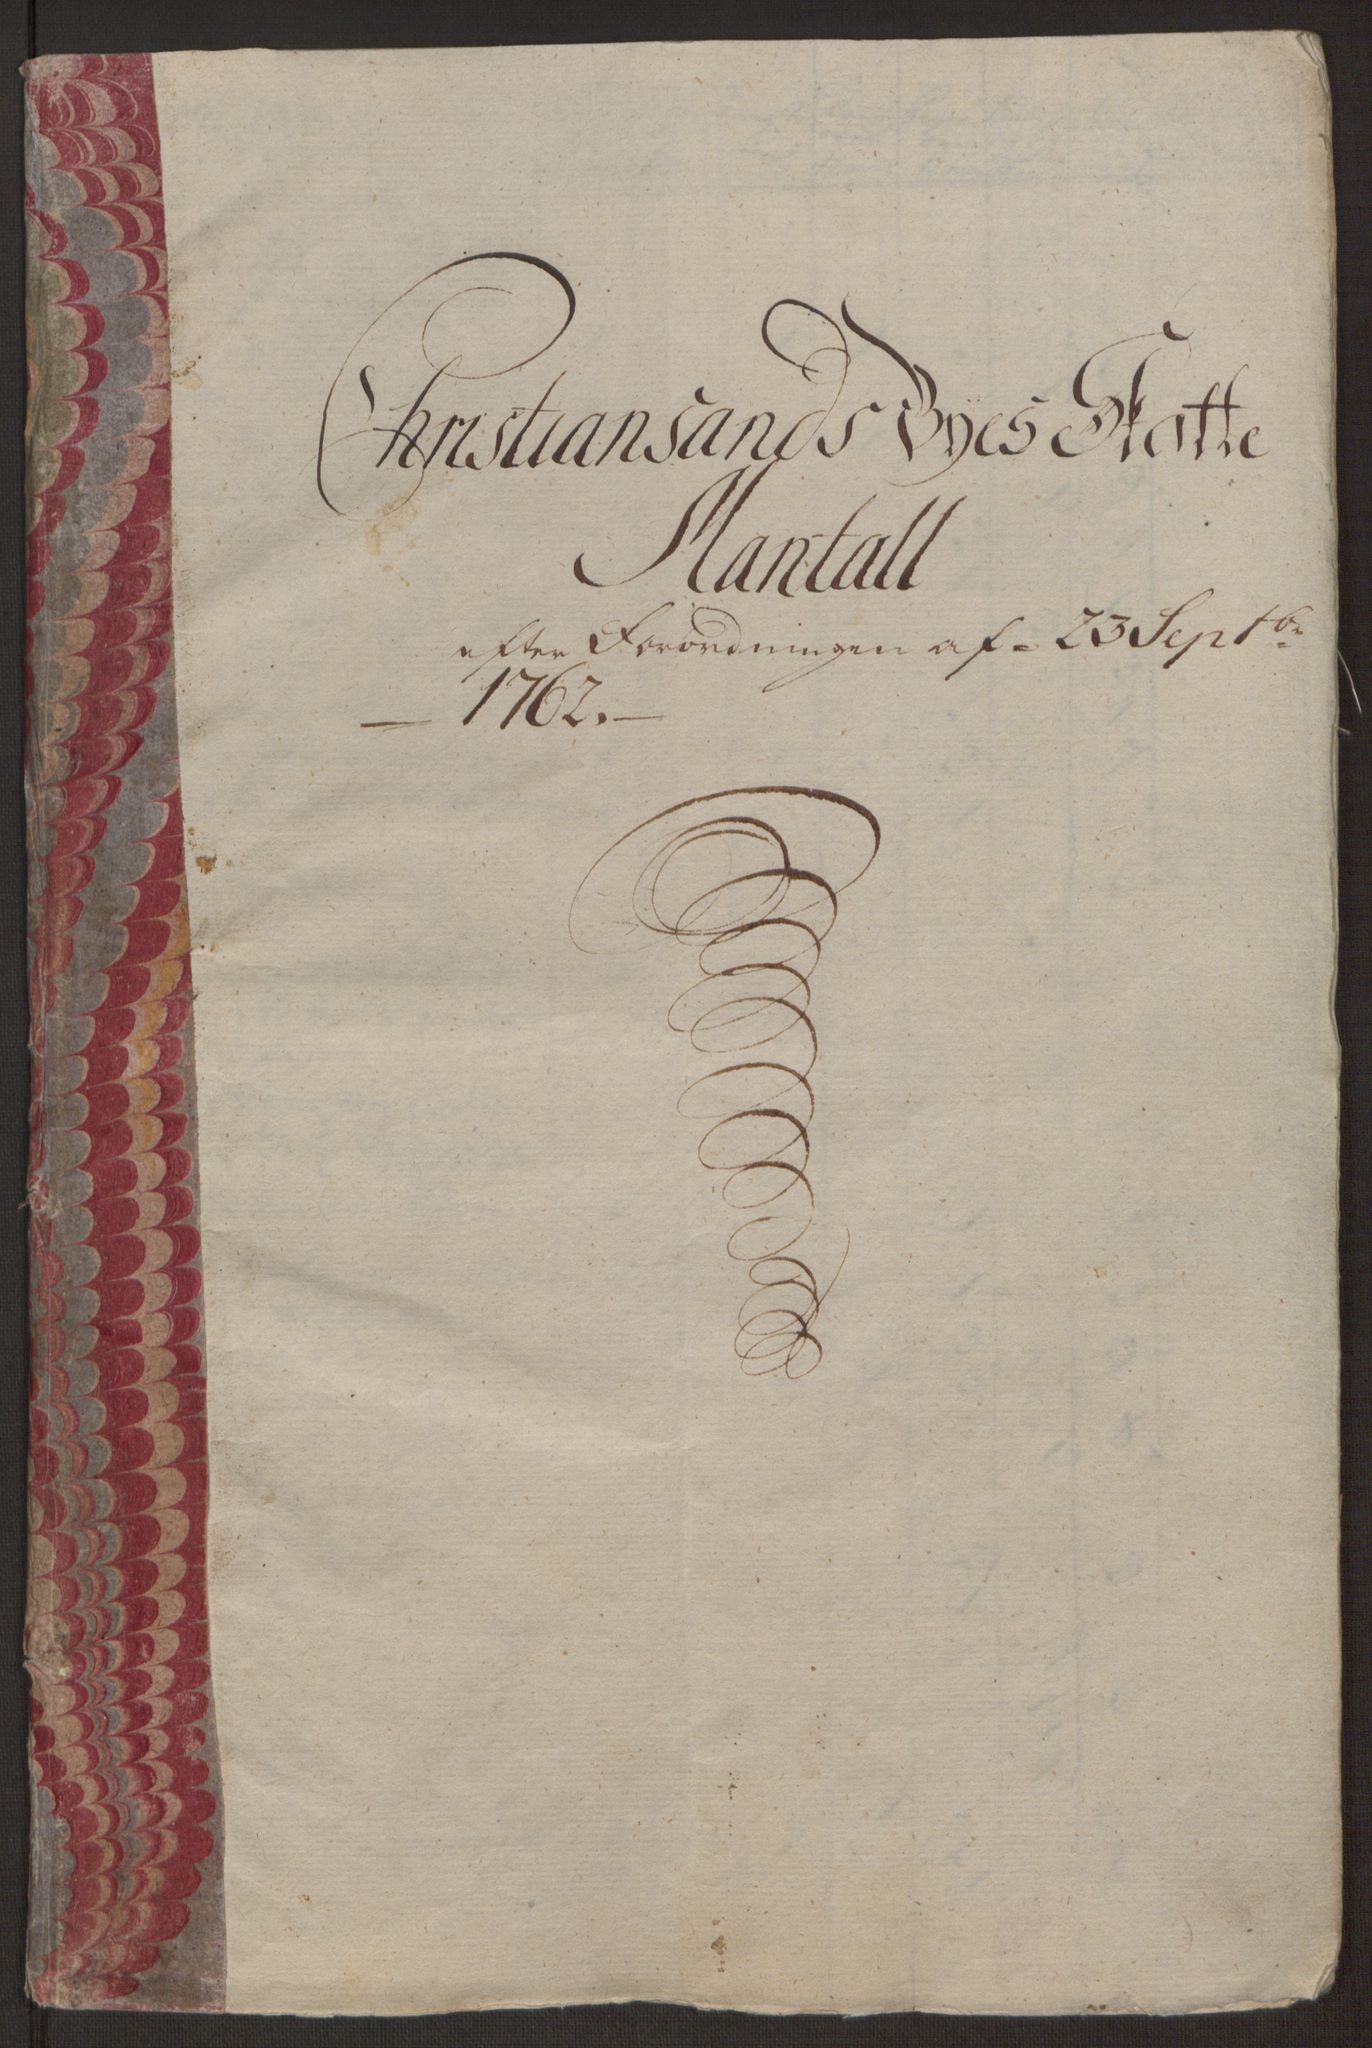 Christiansands Byes Skatte
Mantall
efter Forordningen af 23 Septbr
1762.